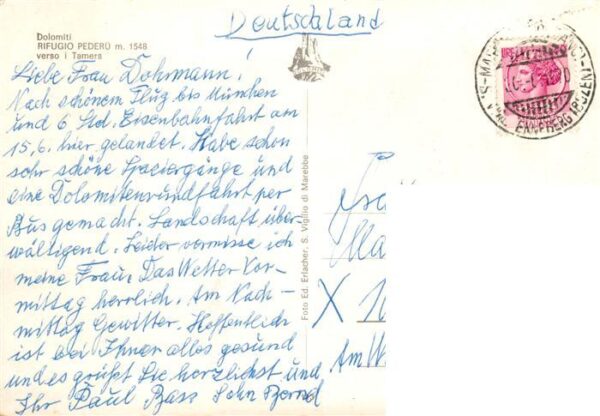 Deutschland
Dolomiti
RIFUGIO PEDERÜ m. 1548
verso i Tamers
Liebe Frau Dohrmann!
Nach schönem Flug bis München
und 6 Std. Eisenbahnfahrt am
15.6. hier gelandet. Habe schon
sehr schöne Spaciergänge und
eine Dolomitenrundfahrt per
Bus gemacht. Landschaft über-
wältigend. Leider vermisse ich
meine Frau. Das Wetter Vor-
mittag herrlich. Am Nach-
mittag Gewitter. Hoffentlich
ist bei Ihnen alles gesund
und es grüßt Sie herzlichst und
Ihr Paul Bass Sohn Bernd
Foto Ed. Erlacher, S. Vigilio di Marebbe
X
Am W